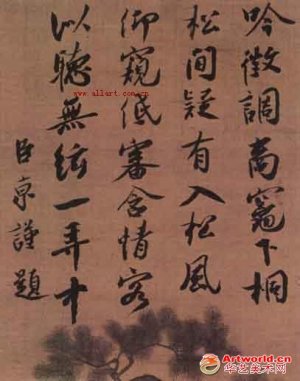 吟徵調商竈下桐
松間疑有入松風
仰窺低審含情客
以聽無絃一弄中
臣京謹題
Artworld.cn
华艺美术网